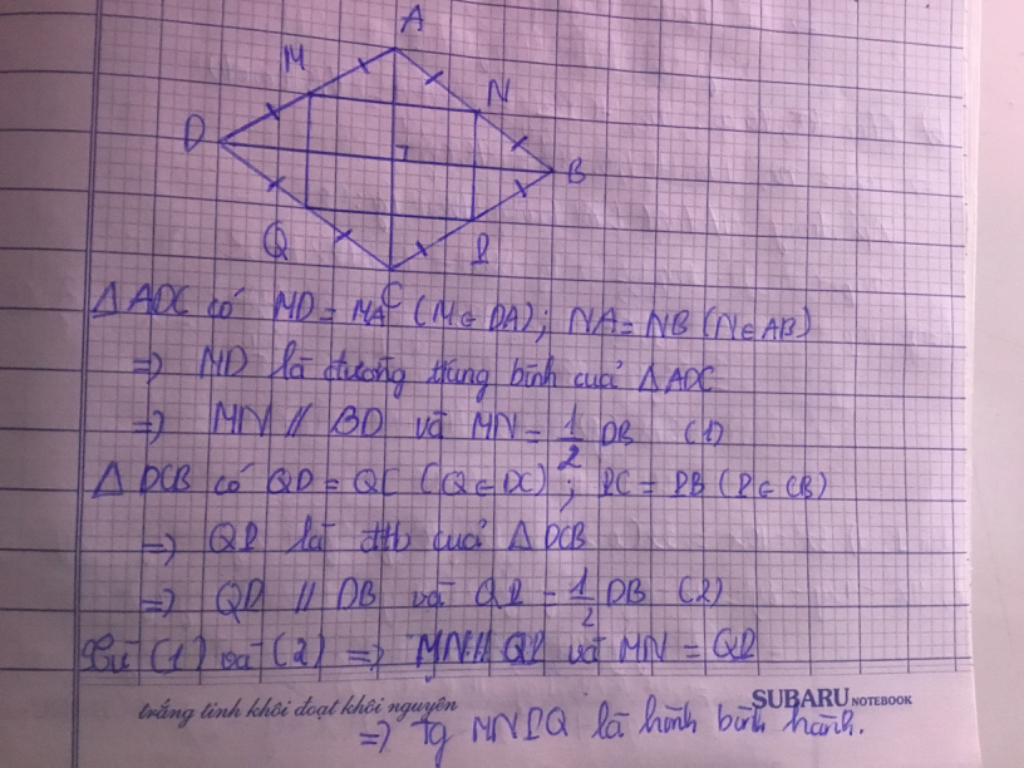 A
M
N
D
B
Q
P
C
Δ ADC có MD = MA (M ∈ DA); NA = NB (N ∈ AB)
=> MD là đường trung bình cuả Δ ADC
=> MN // BD và MN = 1/2 DB (1)
Δ DCB có QD = QC (Q ∈ DC); PC = PB (P ∈ CB)
=> QP là đtb cuả Δ DCB
=> QP // DB và QP = 1/2 DB (2)
Từ (1) và (2) => MN // QP và MN = QP
trắng tinh khôi đoạt khôi nguyên SUBARU NOTEBOOK
=> Tg MNPQ là hình bình hành.